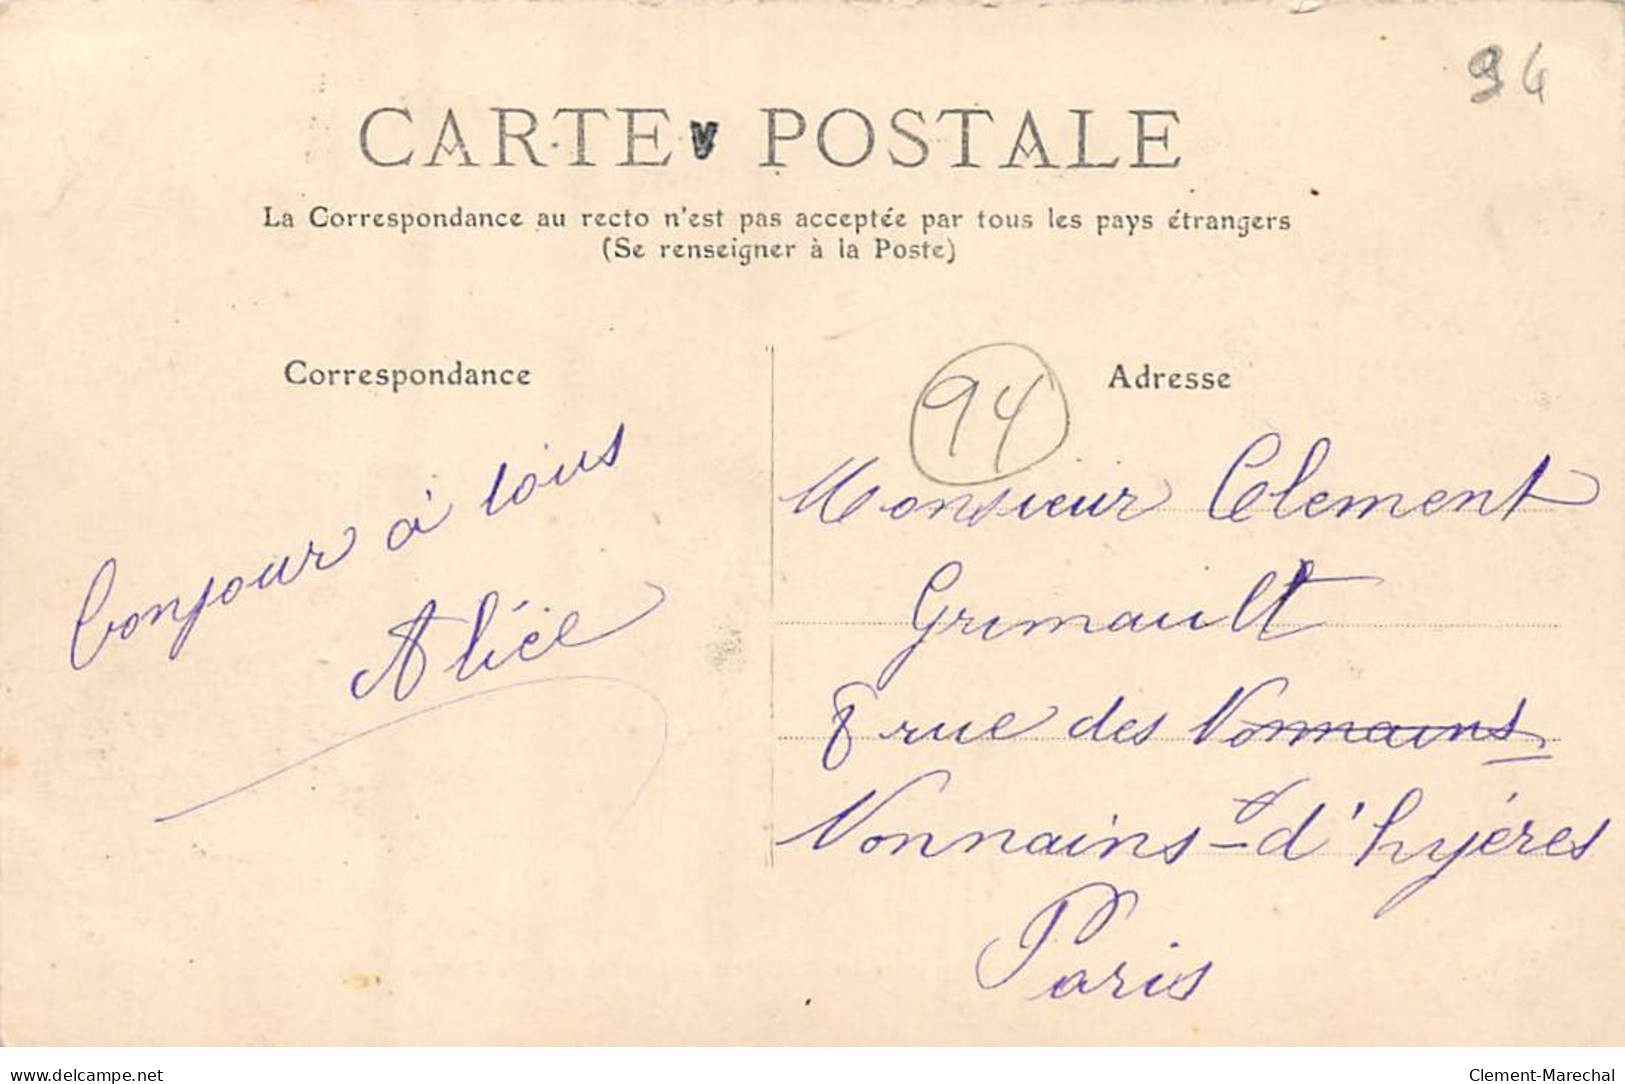 94
CARTE POSTALE
La Correspondance au recto n'est pas acceptée par tous les pays étrangers
(Se renseigner à la Poste)
Correspondance
Bonjour à tous
Alice
Adresse
94
Monsieur Clement
Grimault
8 rue des Nonnains
Nonnains-d'hyéres
Paris
www.delcampe.net
Clement-Marechal